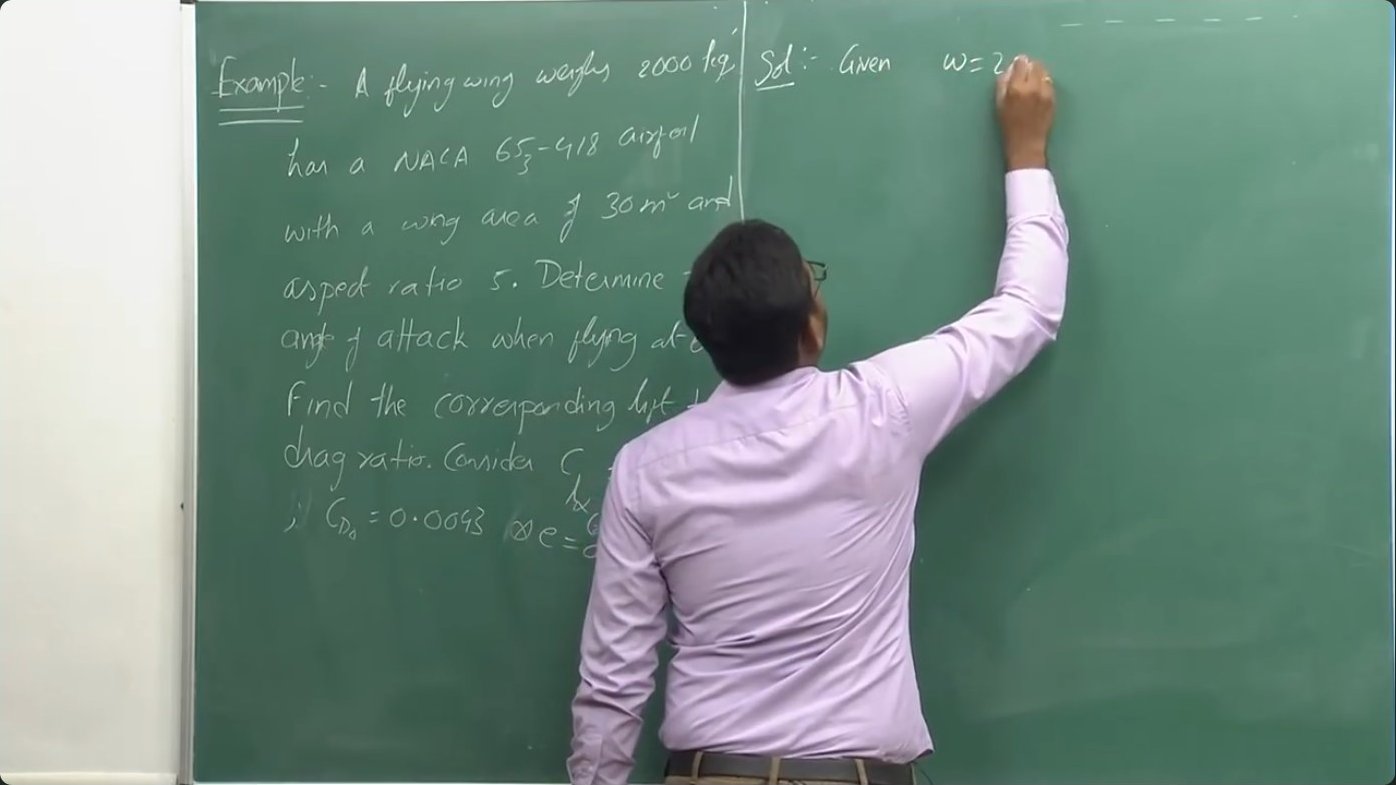 Example:- A flying wing weighs 2000 kg
has a NACA 65₃-418 airfoil
with a wing area of 30 m² and
aspect ratio 5. Determine
angle of attack when flying at
Find the corresponding lift
drag ratio. Consider C
; C_D₀ = 0.0043 e=
Sol:- Given W=2